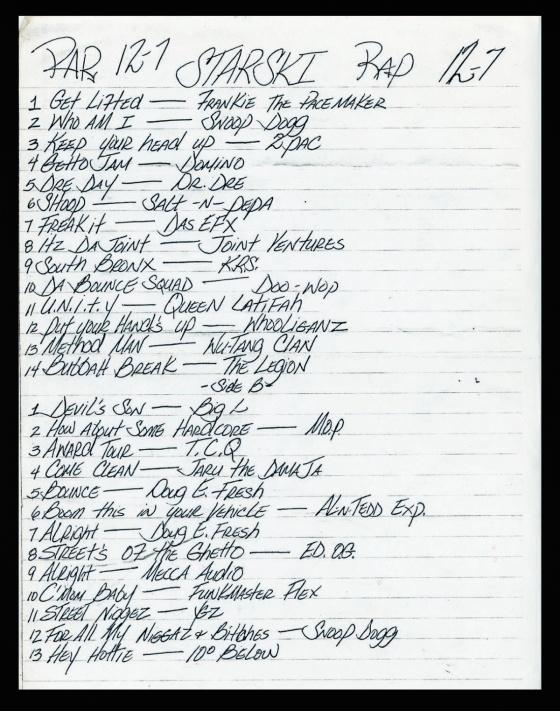 RAP 12-7 STARSKI RAP 12-7
1 Get Lifted — Frankie The Pacemaker
2 Who Am I — Snoop Dogg
3 Keep your head up — 2pac
4 Getto Jam — Domino
5 Dre Day — Dr. Dre
6 Shoop — Salt -n- Pepa
7 Freakit — Das EFX
8 Itz Da Joint — Joint Ventures
9 South Bronx — K.R.S.
10 Da Bounce Squad — Doo-Wop
11 U.N.i.t.y — Queen Latifah
12 Put your Hand's up — Whooliganz
13 Method Man — Wu-Tang Clan
14 Buddah Break — The Legion
-Side B-
1 Devil's Son — Big L
2 How About Some Hardcore — M.O.P.
3 Award Tour — T.C.Q
4 Come Clean — Jaru the Damaja
5 Bounce — Doug E. Fresh
6 Boom this in your Vehicle — Al-n-Tedd Exp.
7 Alright — Doug E. Fresh
8 Street's of the Ghetto — ED. OG.
9 Alright — Mecca Audio
10 C'mon Baby — Funkmaster Flex
11 Street Niggez — YGz
12 For All My Niggaz & Bitches — Snoop Dogg
13 Hey Hottie — 10° Below